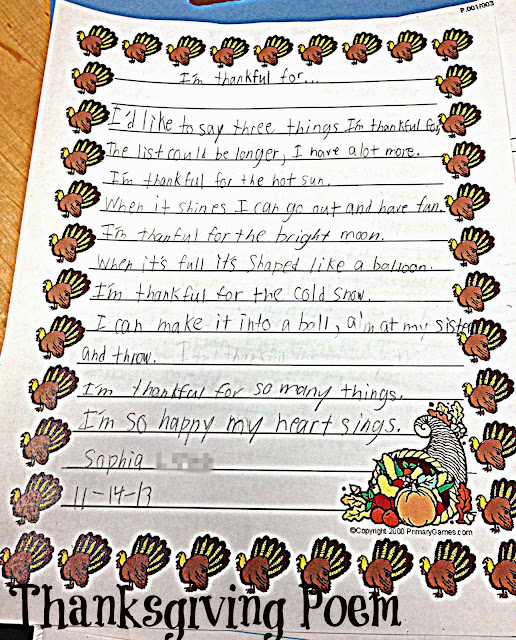 P.001/003
I'm thankful for...
I'd like to say three things I'm thankful for,
The list could be longer, I have alot more.
I'm thankful for the hot sun.
When it shines I can go out and have fun.
I'm thanful for the bright moon.
When it's full it's shaped like a balloon.
I'm thankful for the cold snow.
I can make it into a ball, aim at my sister
and throw.
I'm thankful for so many things.
I'm so happy my heart sings.
Sophia
11-14-13
©Copyright 2000 PrimaryGames.com
Thanksgiving Poem